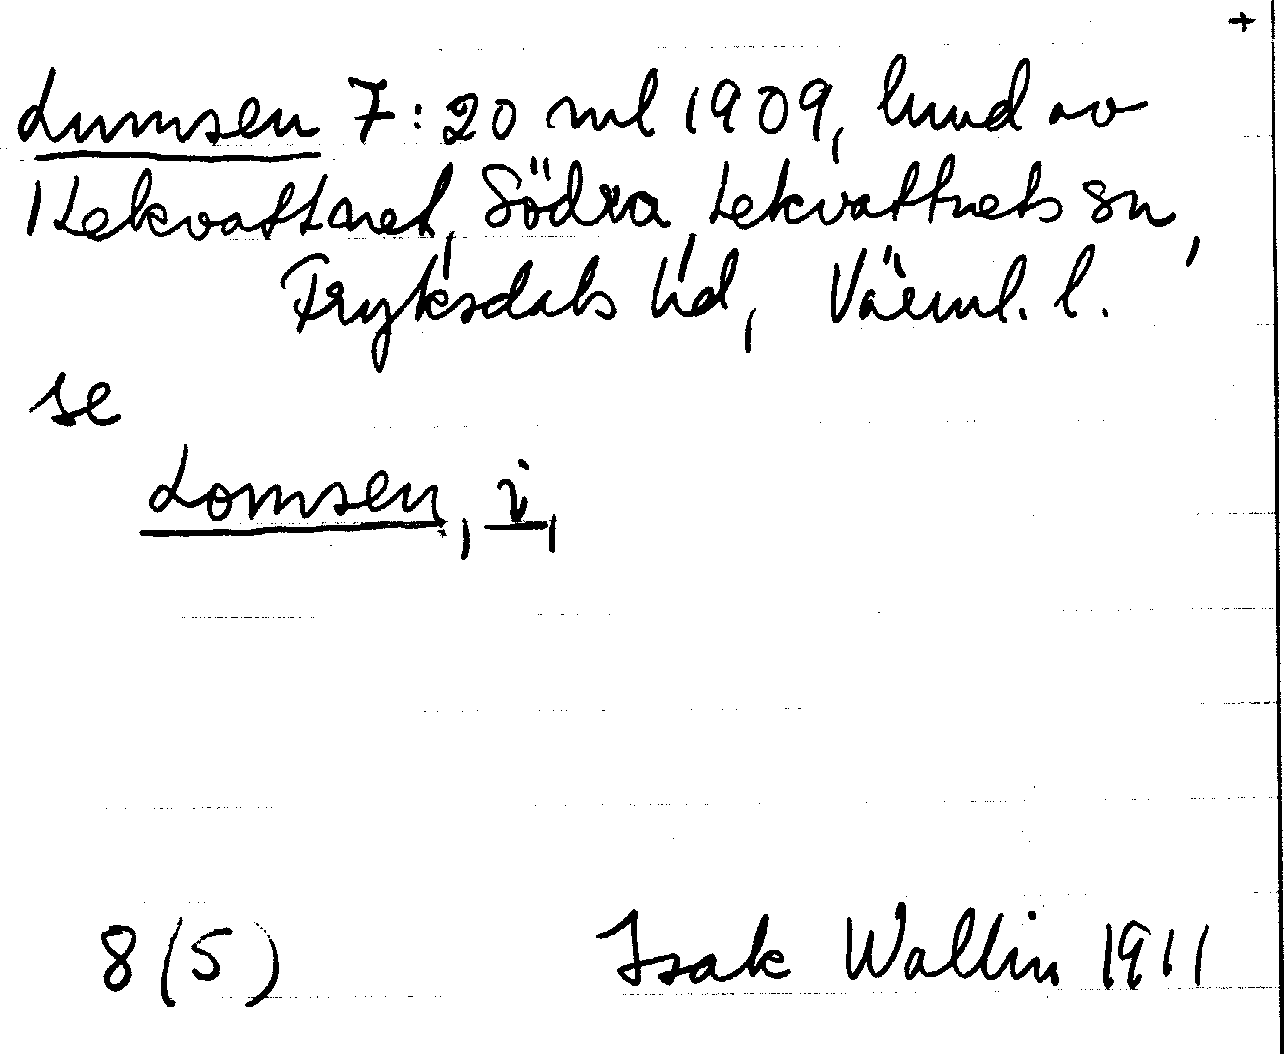 +
Lumsen 7:20 ml 1909, hmd av
1 Lekvattnet, Södra, Lekvattnets sn,
Fryksdals hd, Värml. l.
se
Lomsen, i,
8 (5) Isak Wallin 1911